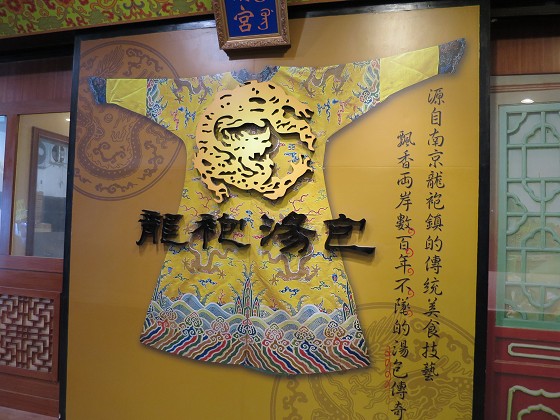 宮
龍袍湯包
源自南京龍袍鎮的傳統美食技藝
飄香兩岸數百年不墜的湯包傳奇